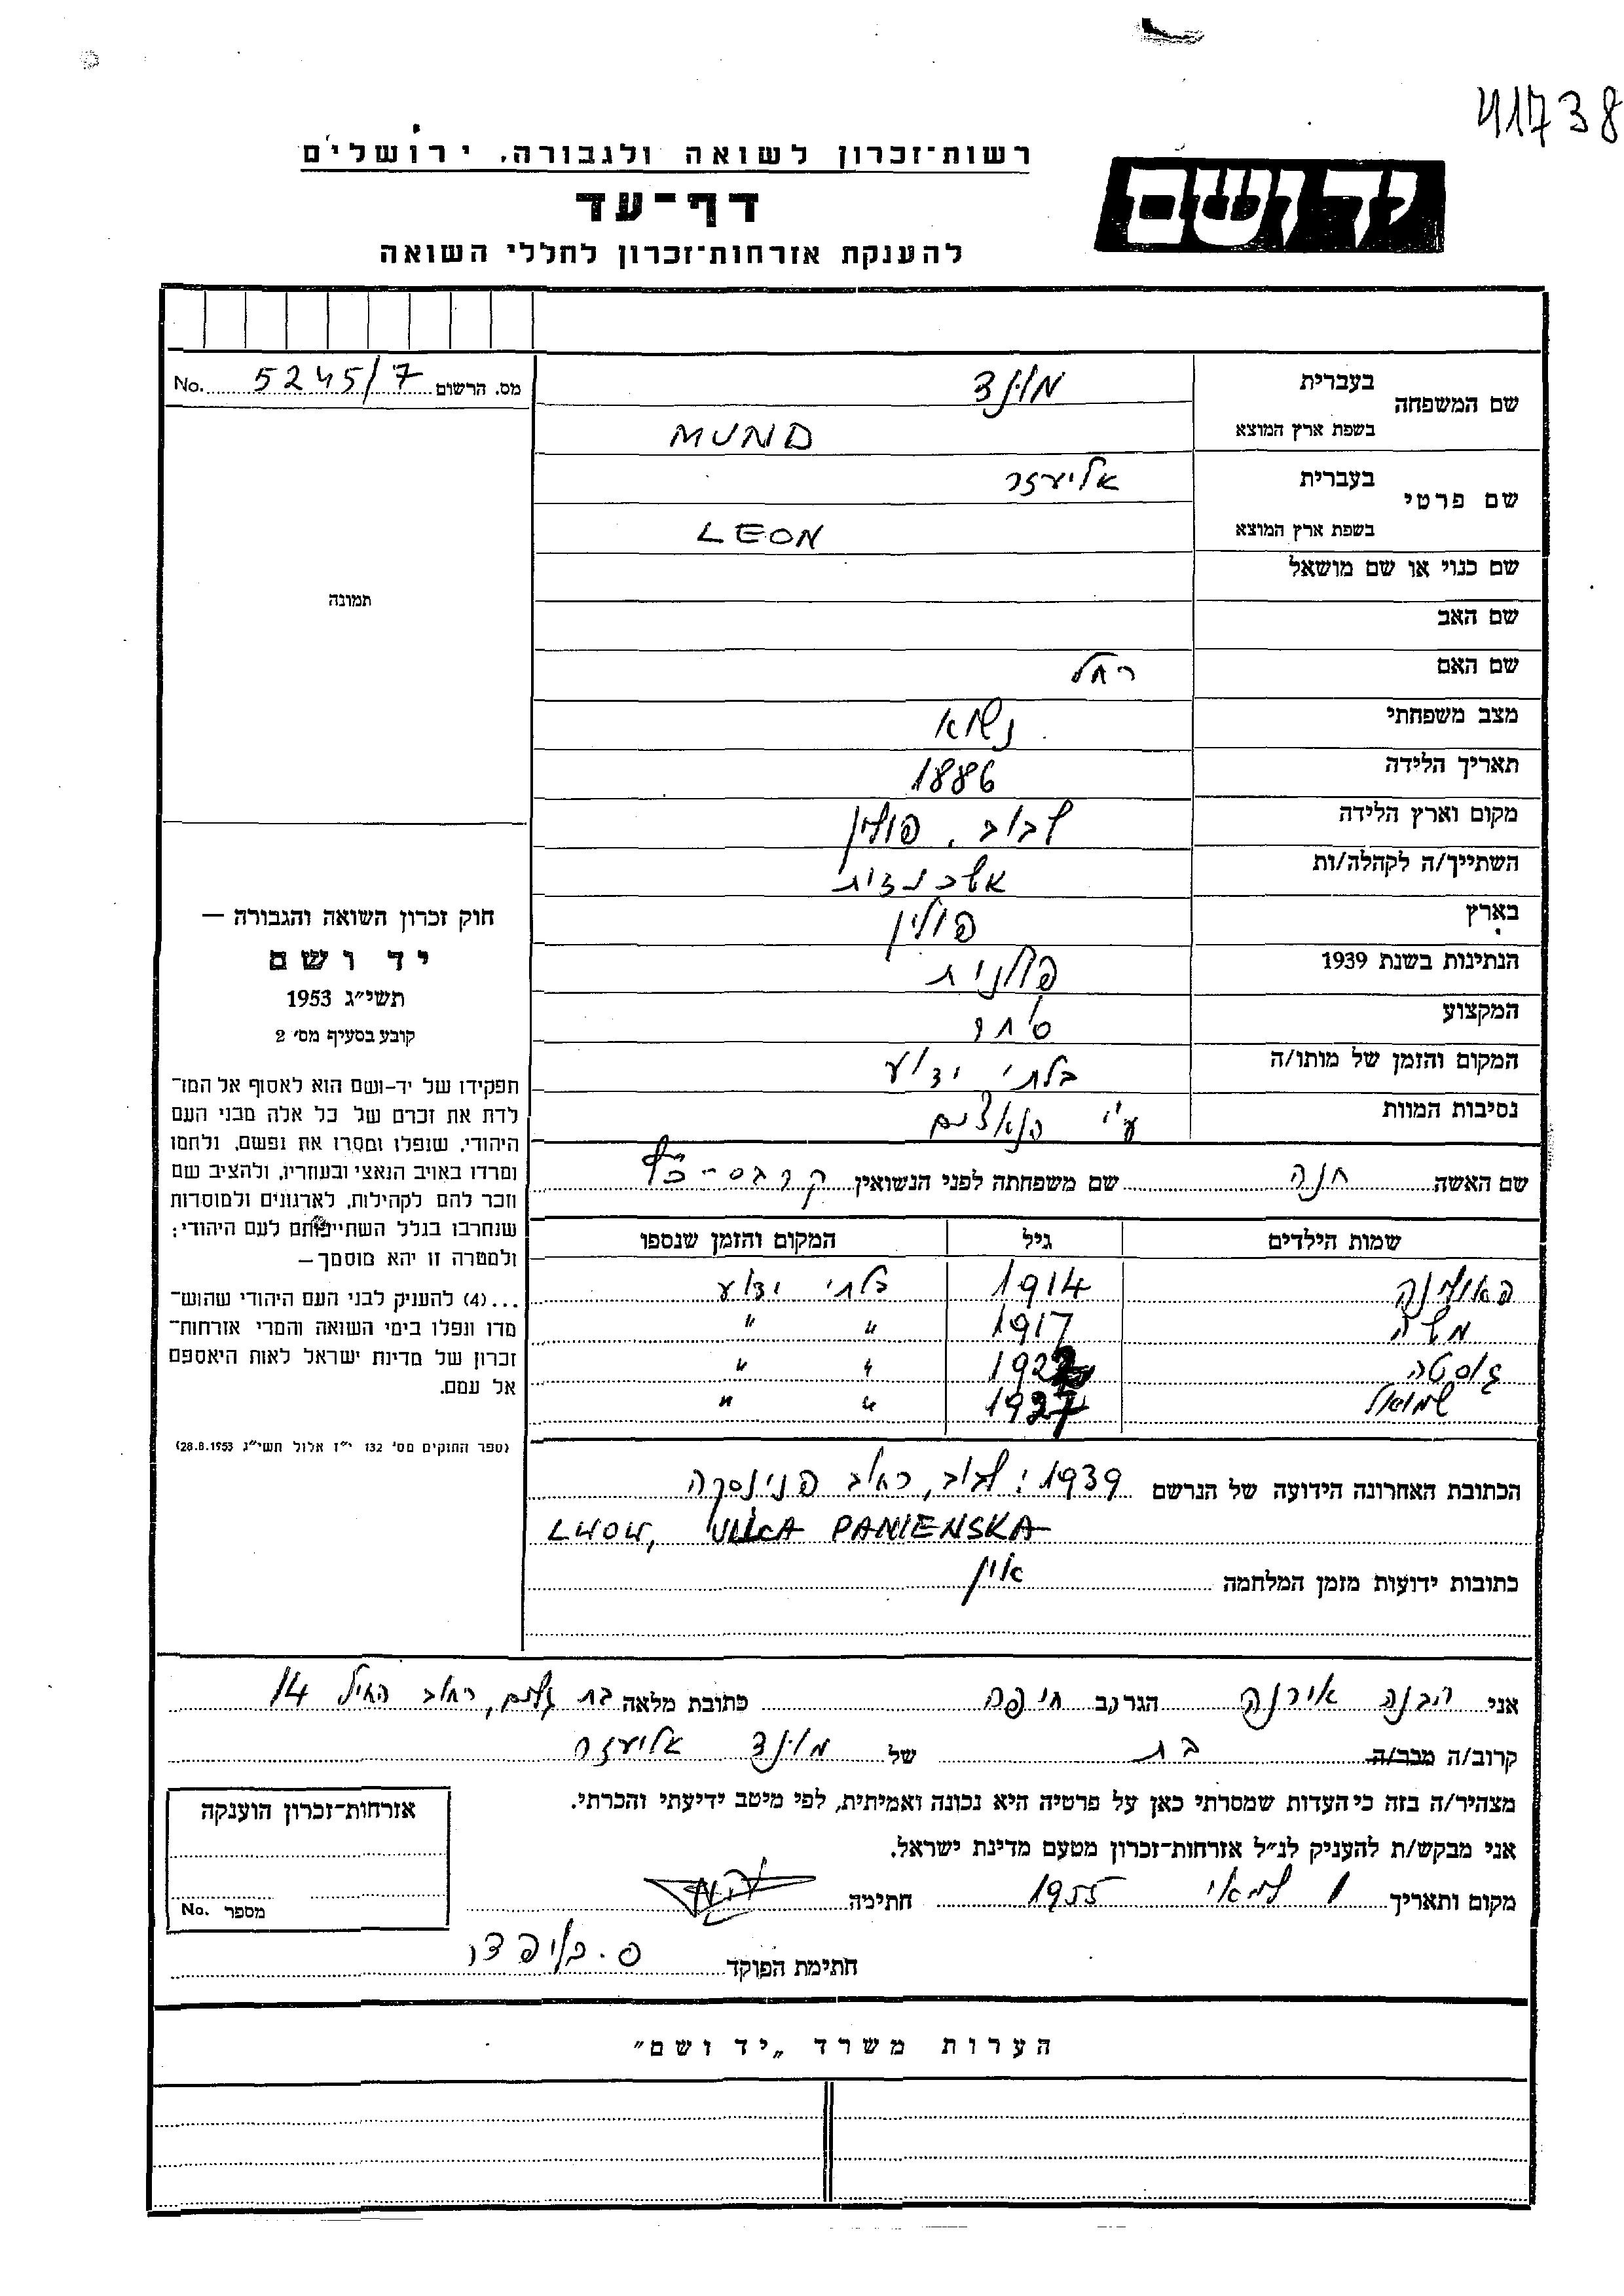 41738
רשות־זכרון לשואה ולגבורה, ירושלים
יד ושם
דף־עד
להענקת אזרחות־זכרון לחללי השואה
מס. הרשום 5245/7 No.
שם המשפחה
בעברית מונד
בשפת ארץ המוצא MUND
שם פרטי
בעברית אליעזר
בשפת ארץ המוצא LEON
שם כנוי או שם מושאל
שם האב
שם האם רחל
מצב משפחתי נשוא
תאריך הלידה 1886
מקום וארץ הלידה לבוב, פולין
השתייך/ה לקהלה/ות אשכנזית
בארץ פולין
הנתינות בשנת 1939 פולנית
המקצוע סוחר
המקום והזמן של מותו/ה בלתי ידוע
נסיבות המוות ע"י הנאצים
תמונה
חוק זכרון השואה והגבורה —
יד ושם
תשי״ג 1953
קובע בסעיף מס׳ 2
תפקידו של יד-ושם הוא לאסוף אל המו־
לדת את זכרם של כל אלה מבני העם
היהודי, שנפלו ומסרו את נפשם, נלחמו
ומרדו באויב הנאצי ובעוזריו, ולהציב שם
וזכר להם לקהילות, לארגונים ולמוסדות
שנחרבו בגלל השתייכותם לעם היהודי;
ולמטרה זו יהא מוסמך —
...(4) להעניק לבני העם היהודי שהוש־
מדו ונפלו בימי השואה והמרי אזרחות־
זכרון של מדינת ישראל לאות היאספם
אל עמם.
(ספר החוקים מס׳ 132 י״ז אלול תשי״ג 28.8.1953)
שם האשה חנה שם משפחתה לפני הנשואין
שמות הילדים גיל המקום והזמן שנספו
פאולינה 1914 בלתי ידוע
משה 1917 " "
גוסטה 1922 " "
שמואל 1927 " "
הכתובת האחרונה הידועה של הנרשם 1939: לבוב, רחוב פנינסקה
LWOW, ULICA PANIENSKA
כתובות ידועות מזמן המלחמה אין
אני אירנה הגר/ה ב חיפה כתובת מלאה בת גלים, רחוב 14
קרוב/ה מכר/ה בת של מונד אליעזר
מצהיר/ה בזה כי העדות שמסרתי כאן על פרטיה היא נכונה ואמיתית, לפי מיטב ידיעתי והכרתי.
אני מבקש/ת להעניק לנ״ל אזרחות־זכרון מטעם מדינת ישראל.
מקום ותאריך 1 למאי 1955 חתימה
חתימת הפוקד
אזרחות־זכרון הוענקה
מספר No.
הערות משרד „יד ושם״